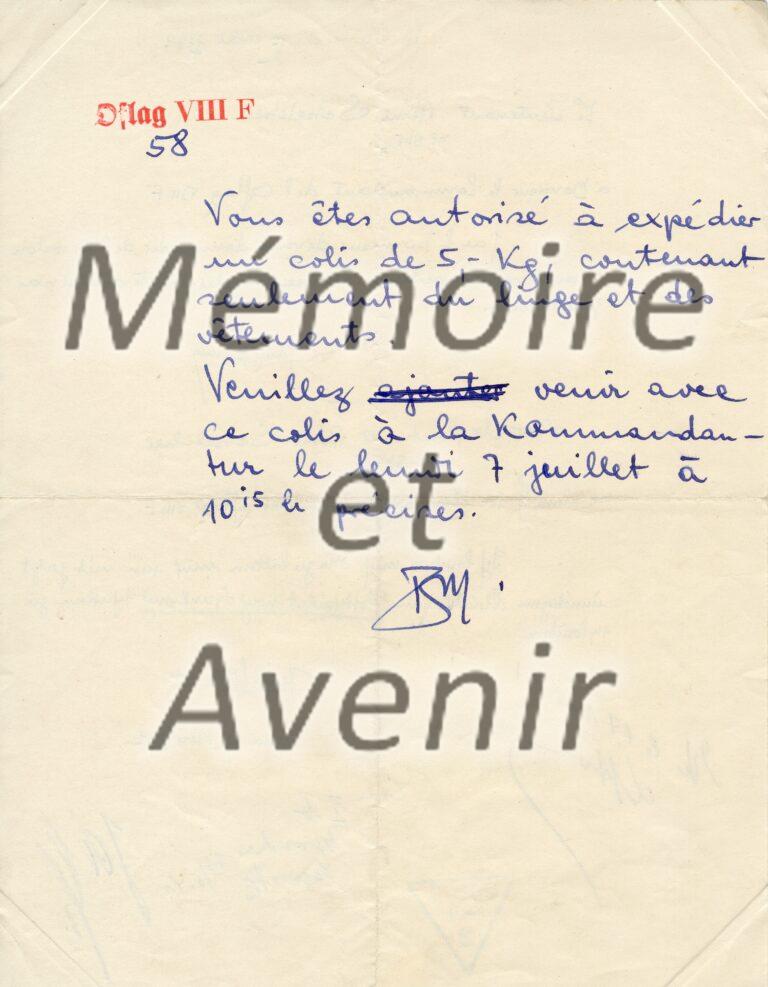 Oflag VIII F
58
Vous êtes autorisé à expédier
un colis de 5,- Kg, contenant
seulement du linge et des
vêtements.
Veuillez ajouter venir avec
ce colis à la Kommandan-
tur le lundi 7 juillet à
10 15 h précises.
BM
Mémoire
et
Avenir